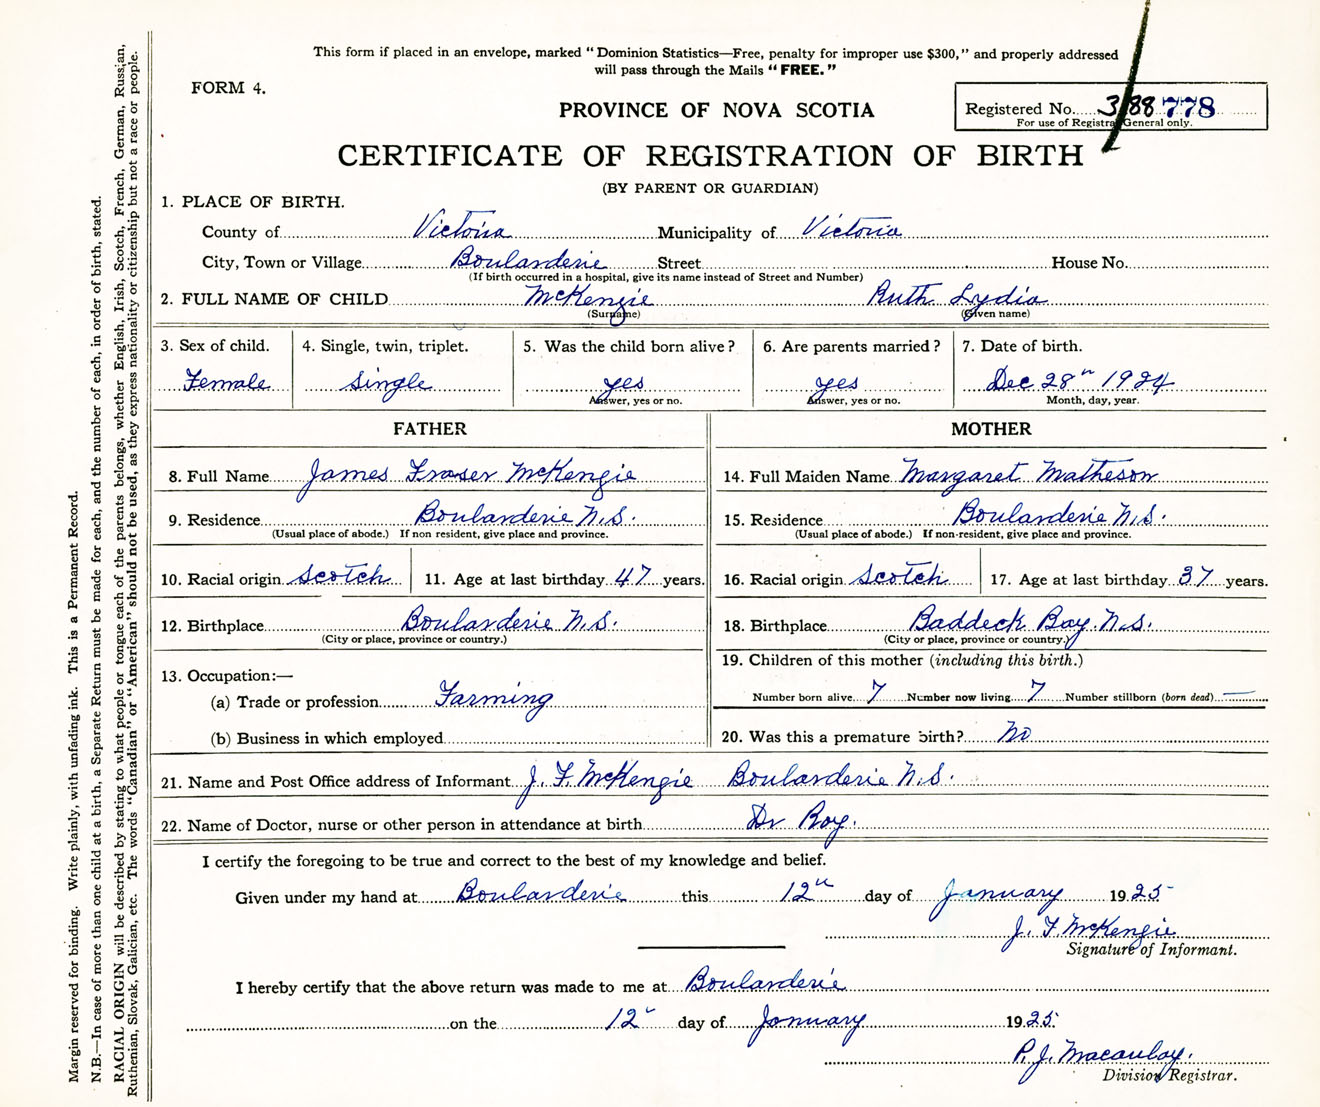 This form if placed in an envelope, marked “Dominion Statistics—Free, penalty for improper use $300,” and properly addressed
will pass through the Mails “FREE.”
FORM 4.
PROVINCE OF NOVA SCOTIA
Registered No. 388 778
For use of Registrar General only.
CERTIFICATE OF REGISTRATION OF BIRTH
(BY PARENT OR GUARDIAN)
1. PLACE OF BIRTH.
County of Victoria Municipality of Victoria
City, Town or Village Boularderie Street House No.
(If birth occurred in a hospital, give its name instead of Street and Number)
2. FULL NAME OF CHILD McKenzie Ruth Lydia
(Surname) (Given name)
3. Sex of child. 4. Single, twin, triplet. 5. Was the child born alive? 6. Are parents married? 7. Date of birth.
Female single yes yes Dec 28th 1924
Answer, yes or no. Answer, yes or no. Month, day, year.
FATHER MOTHER
8. Full Name James Fraser McKenzie 14. Full Maiden Name Margaret Matheson
9. Residence Boularderie N.S. 15. Residence Boularderie N.S.
(Usual place of abode.) If non resident, give place and province. (Usual place of abode.) If non-resident, give place and province.
10. Racial origin Scotch 11. Age at last birthday 47 years. 16. Racial origin Scotch 17. Age at last birthday 37 years.
12. Birthplace Boularderie N.S. 18. Birthplace Baddeck Bay N.S.
(City or place, province or country.) (City or place, province or country.)
13. Occupation:— 19. Children of this mother (including this birth.)
(a) Trade or profession Farming Number born alive 7 Number now living 7 Number stillborn (born dead) —
(b) Business in which employed 20. Was this a premature birth? No
21. Name and Post Office address of Informant J. F. McKenzie Boularderie N.S.
22. Name of Doctor, nurse or other person in attendance at birth Dr Roy.
I certify the foregoing to be true and correct to the best of my knowledge and belief.
Given under my hand at Boularderie this 12th day of January 1925
J. F McKenzie
Signature of Informant.
I hereby certify that the above return was made to me at Boularderie
on the 12 day of January 1925.
P. J. Macaulay.
Division Registrar.
Margin reserved for binding. Write plainly, with unfading ink. This is a Permanent Record.
N.B.—In case of more than one child at a birth, a Separate Return must be made for each, and the number of each, in order of birth, stated.
RACIAL ORIGIN will be described by stating to what people or tongue each of the parents belongs, whether English, Irish, Scotch, French, German, Russian,
Ruthenian, Slovak, Galician, etc. The words “Canadian” or “American” should not be used, as they express nationality or citizenship but not a race or people.